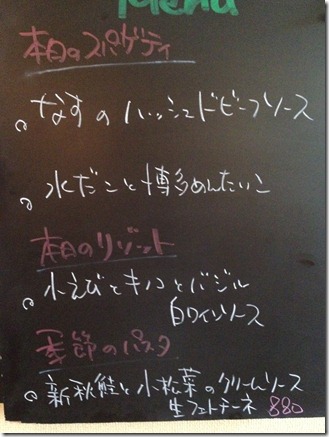 Menu
本日のスパゲティ
なすのハッシュドビーフソース
水だこと博多めんたいこ
本日のリゾット
小えびとキノコとバジル
白ワインソース
季節のパスタ
新秋鮭と小松菜のクリームソース
生フェトチーネ 880